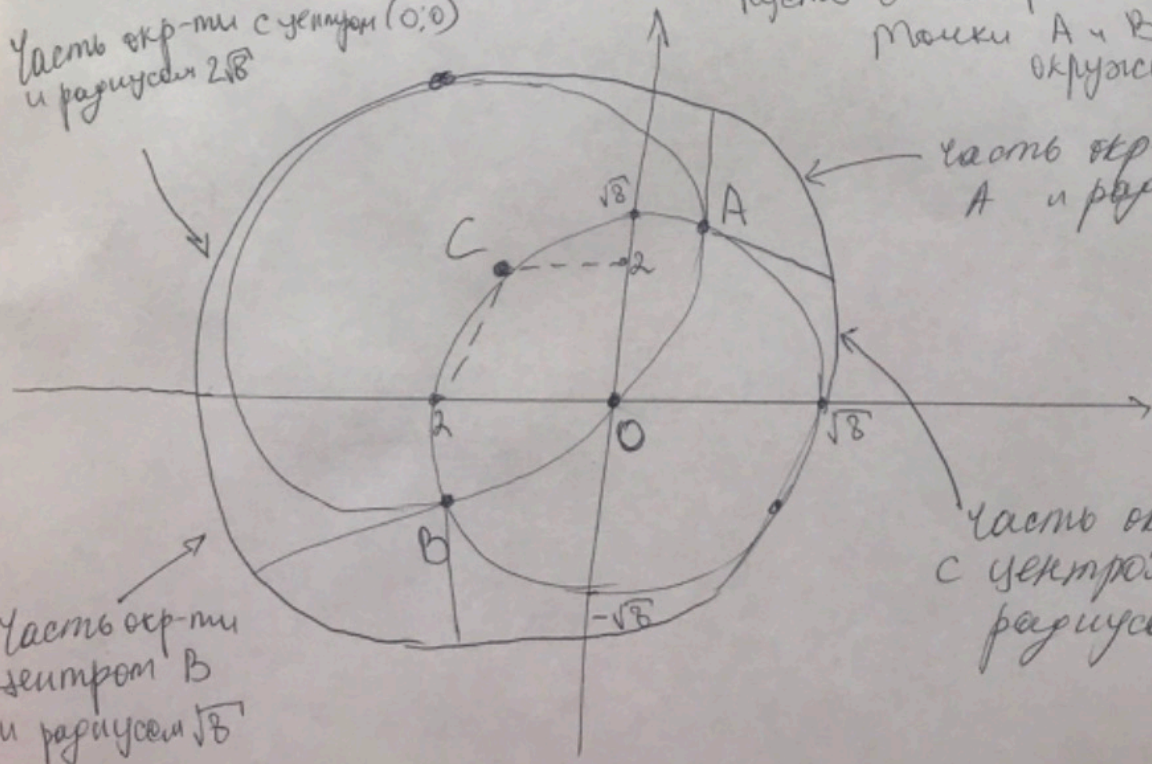 Часть окр-ти с центром (0;0)
и радиусом 2√8
Пусть
точки A и B
окружн
часть окр
A и рад
√8
A
C
2
2
O
√8
B
-√8
часть ок
с центро
радиусо
Часть окр-ти
центром B
и радиусом √8